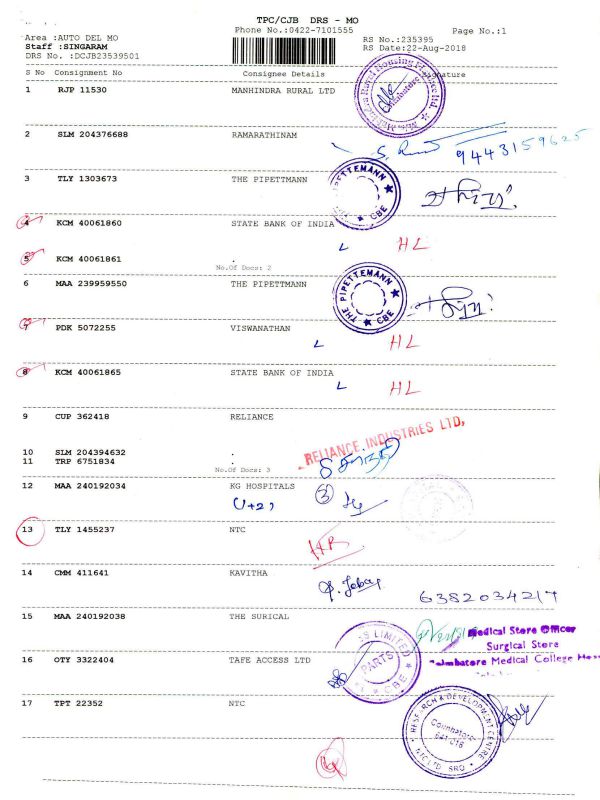 TPC/CJB DRS - MO
Phone No.:0422-7101555
Page No.:1
Area :AUTO DEL MO
RS No.:235395
Staff :SINGARAM
RS Date:22-Aug-2018
DRS No. :DCJB23539501
S No Consignment No Consignee Details Signature
1 RJP 11530 MANHINDRA RURAL LTD
2 SLM 204376688 RAMARATHINAM
9443159625
3 TLY 1303673 THE PIPETTMANN
THE PIPETTEMANN CBE
4 KCM 40061860 STATE BANK OF INDIA
L HL
5 KCM 40061861 .
No.Of Docs: 2
6 MAA 239959550 THE PIPETTMANN
THE PIPETTEMANN CBE
7 PDK 5072255 VISWANATHAN
L HL
8 KCM 40061865 STATE BANK OF INDIA
L HL
9 CUP 362418 RELIANCE
RELIANCE INDUSTRIES LTD,
10 SLM 204394632 .
11 TRP 6751834 .
No.Of Docs: 3
12 MAA 240192034 KG HOSPITALS
3
13 TLY 1455237 NTC
14 CMM 411641 KAVITHA
6382034217
15 MAA 240192038 THE SURICAL
Medical Store Officer
Surgical Store
Coimbatore Medical College Hos
16 OTY 3322404 TAFE ACCESS LTD
SS LIMITED PARTS CBE
17 TPT 22352 NTC
RESEARCH & DEVELOPMENT CENTRE
Coimbatore
641 018